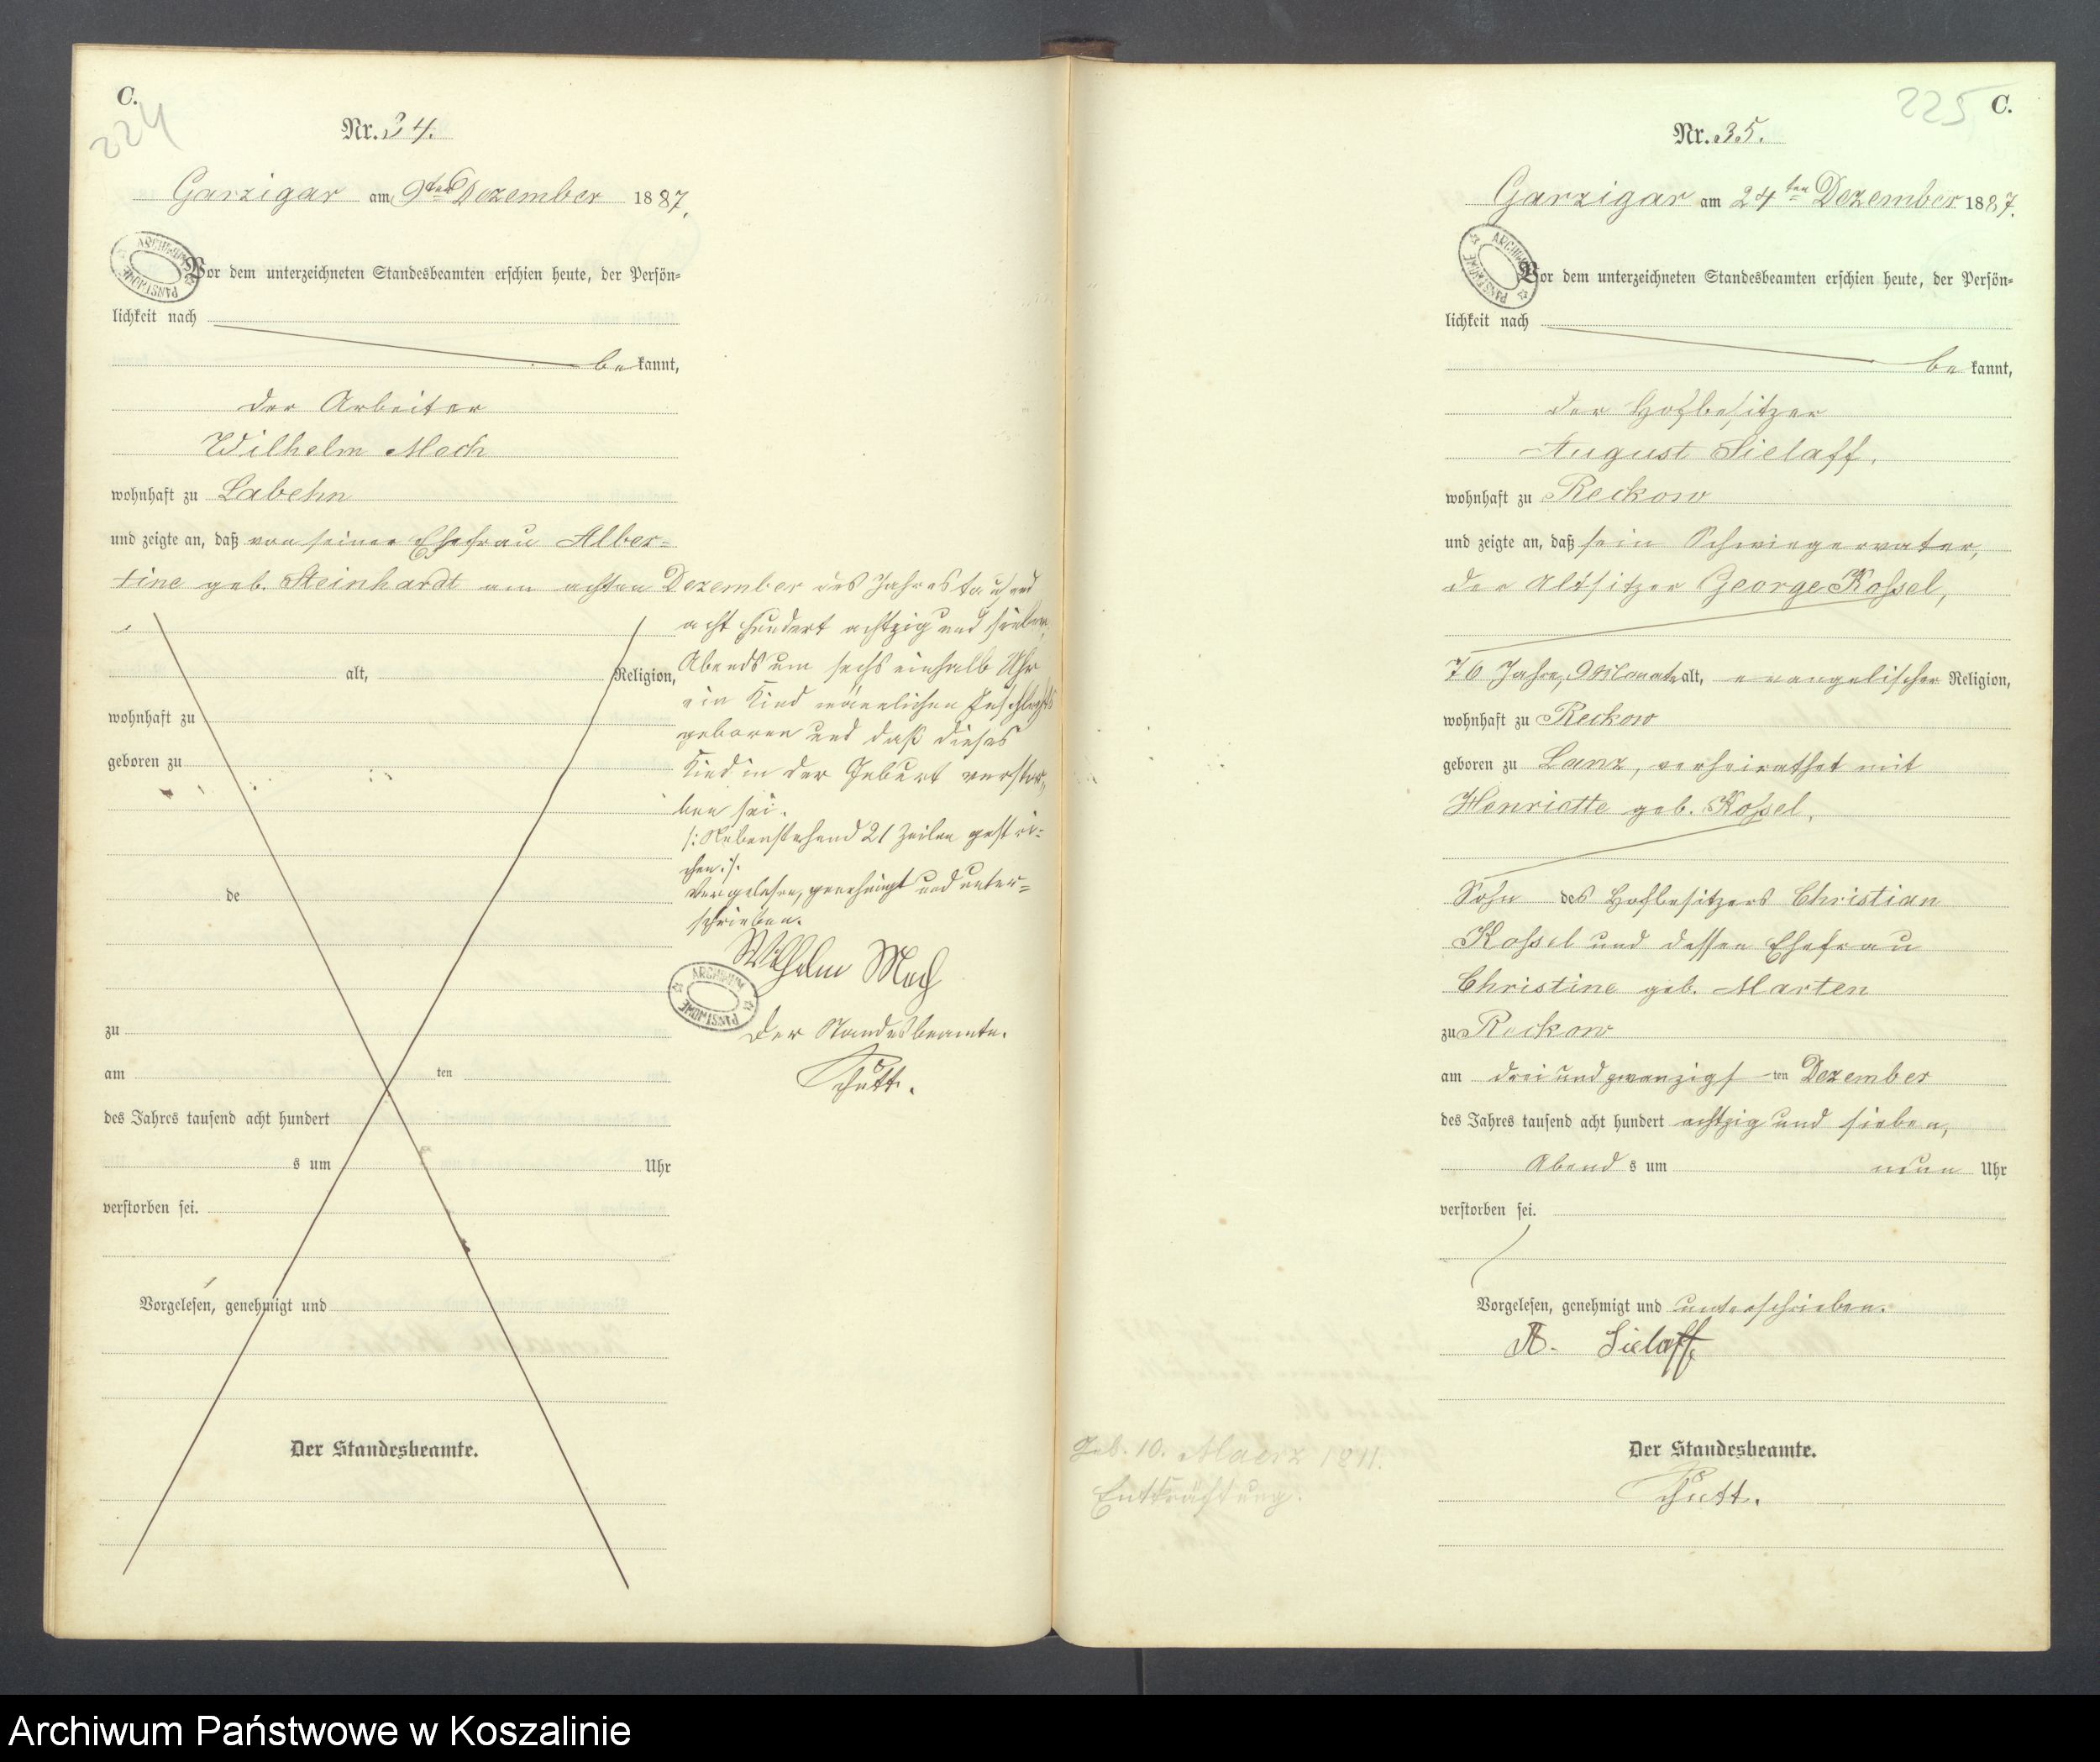 C.
224
Nr. 34.
Garzigar am 9ten Dezember 1887.
Vor dem unterzeichneten Standesbeamten erschien heute, der Persön=
lichkeit nach
bekannt,
der Arbeiter
Wilhelm Mach
wohnhaft zu Labehn
und zeigte an, daß von seiner Ehefrau Alber=
tine geb. Steinhardt am achten Dezember des Jahres tausend
acht hundert achtzig und sieben,
Abends um sechs einhalb Uhr
ein Kind männlichen Geschlechts
geboren und daß dieses
Kind in der Geburt verstor=
ben sei.
/: Nebenstehend 21 Zeilen gestri=
chen. :/
Vorgelesen, genehmigt und unter=
schrieben.
Wilhelm Mach
Der Standesbeamte.
Schütt.
alt, Religion,
wohnhaft zu
geboren zu
de
zu
am ten
des Jahres tausend acht hundert
s um Uhr
verstorben sei.
Vorgelesen, genehmigt und
Der Standesbeamte.
ARCHIWUM PAŃSTWOWE
ARCHIWUM PAŃSTWOWE
225
C.
Nr. 35.
Garzigar am 24ten Dezember 1887.
ARCHIWUM PAŃSTWOWE
Vor dem unterzeichneten Standesbeamten erschien heute, der Persön=
lichkeit nach
bekannt,
der Hofbesitzer
August Sielaff,
wohnhaft zu Reckow
und zeigte an, daß sein Schwiegervater,
der Altsitzer George Koßel,
76 Jahre, 9 Monate alt, evangelischer Religion,
wohnhaft zu Reckow
geboren zu Lanz, verheirathet mit
Henriette geb. Koßel,
Sohn des Hofbesitzers Christian
Koßel und dessen Ehefrau
Christine geb. Marten
zu Reckow
am drei und zwanzigsten Dezember
des Jahres tausend acht hundert achtzig und sieben,
Abends um neun Uhr
verstorben sei.
Vorgelesen, genehmigt und unterschrieben.
A. Sielaff
Der Standesbeamte.
Schütt.
Geb. 10. Maerz 1811.
Entkräftung.
Archiwum Państwowe w Koszalinie